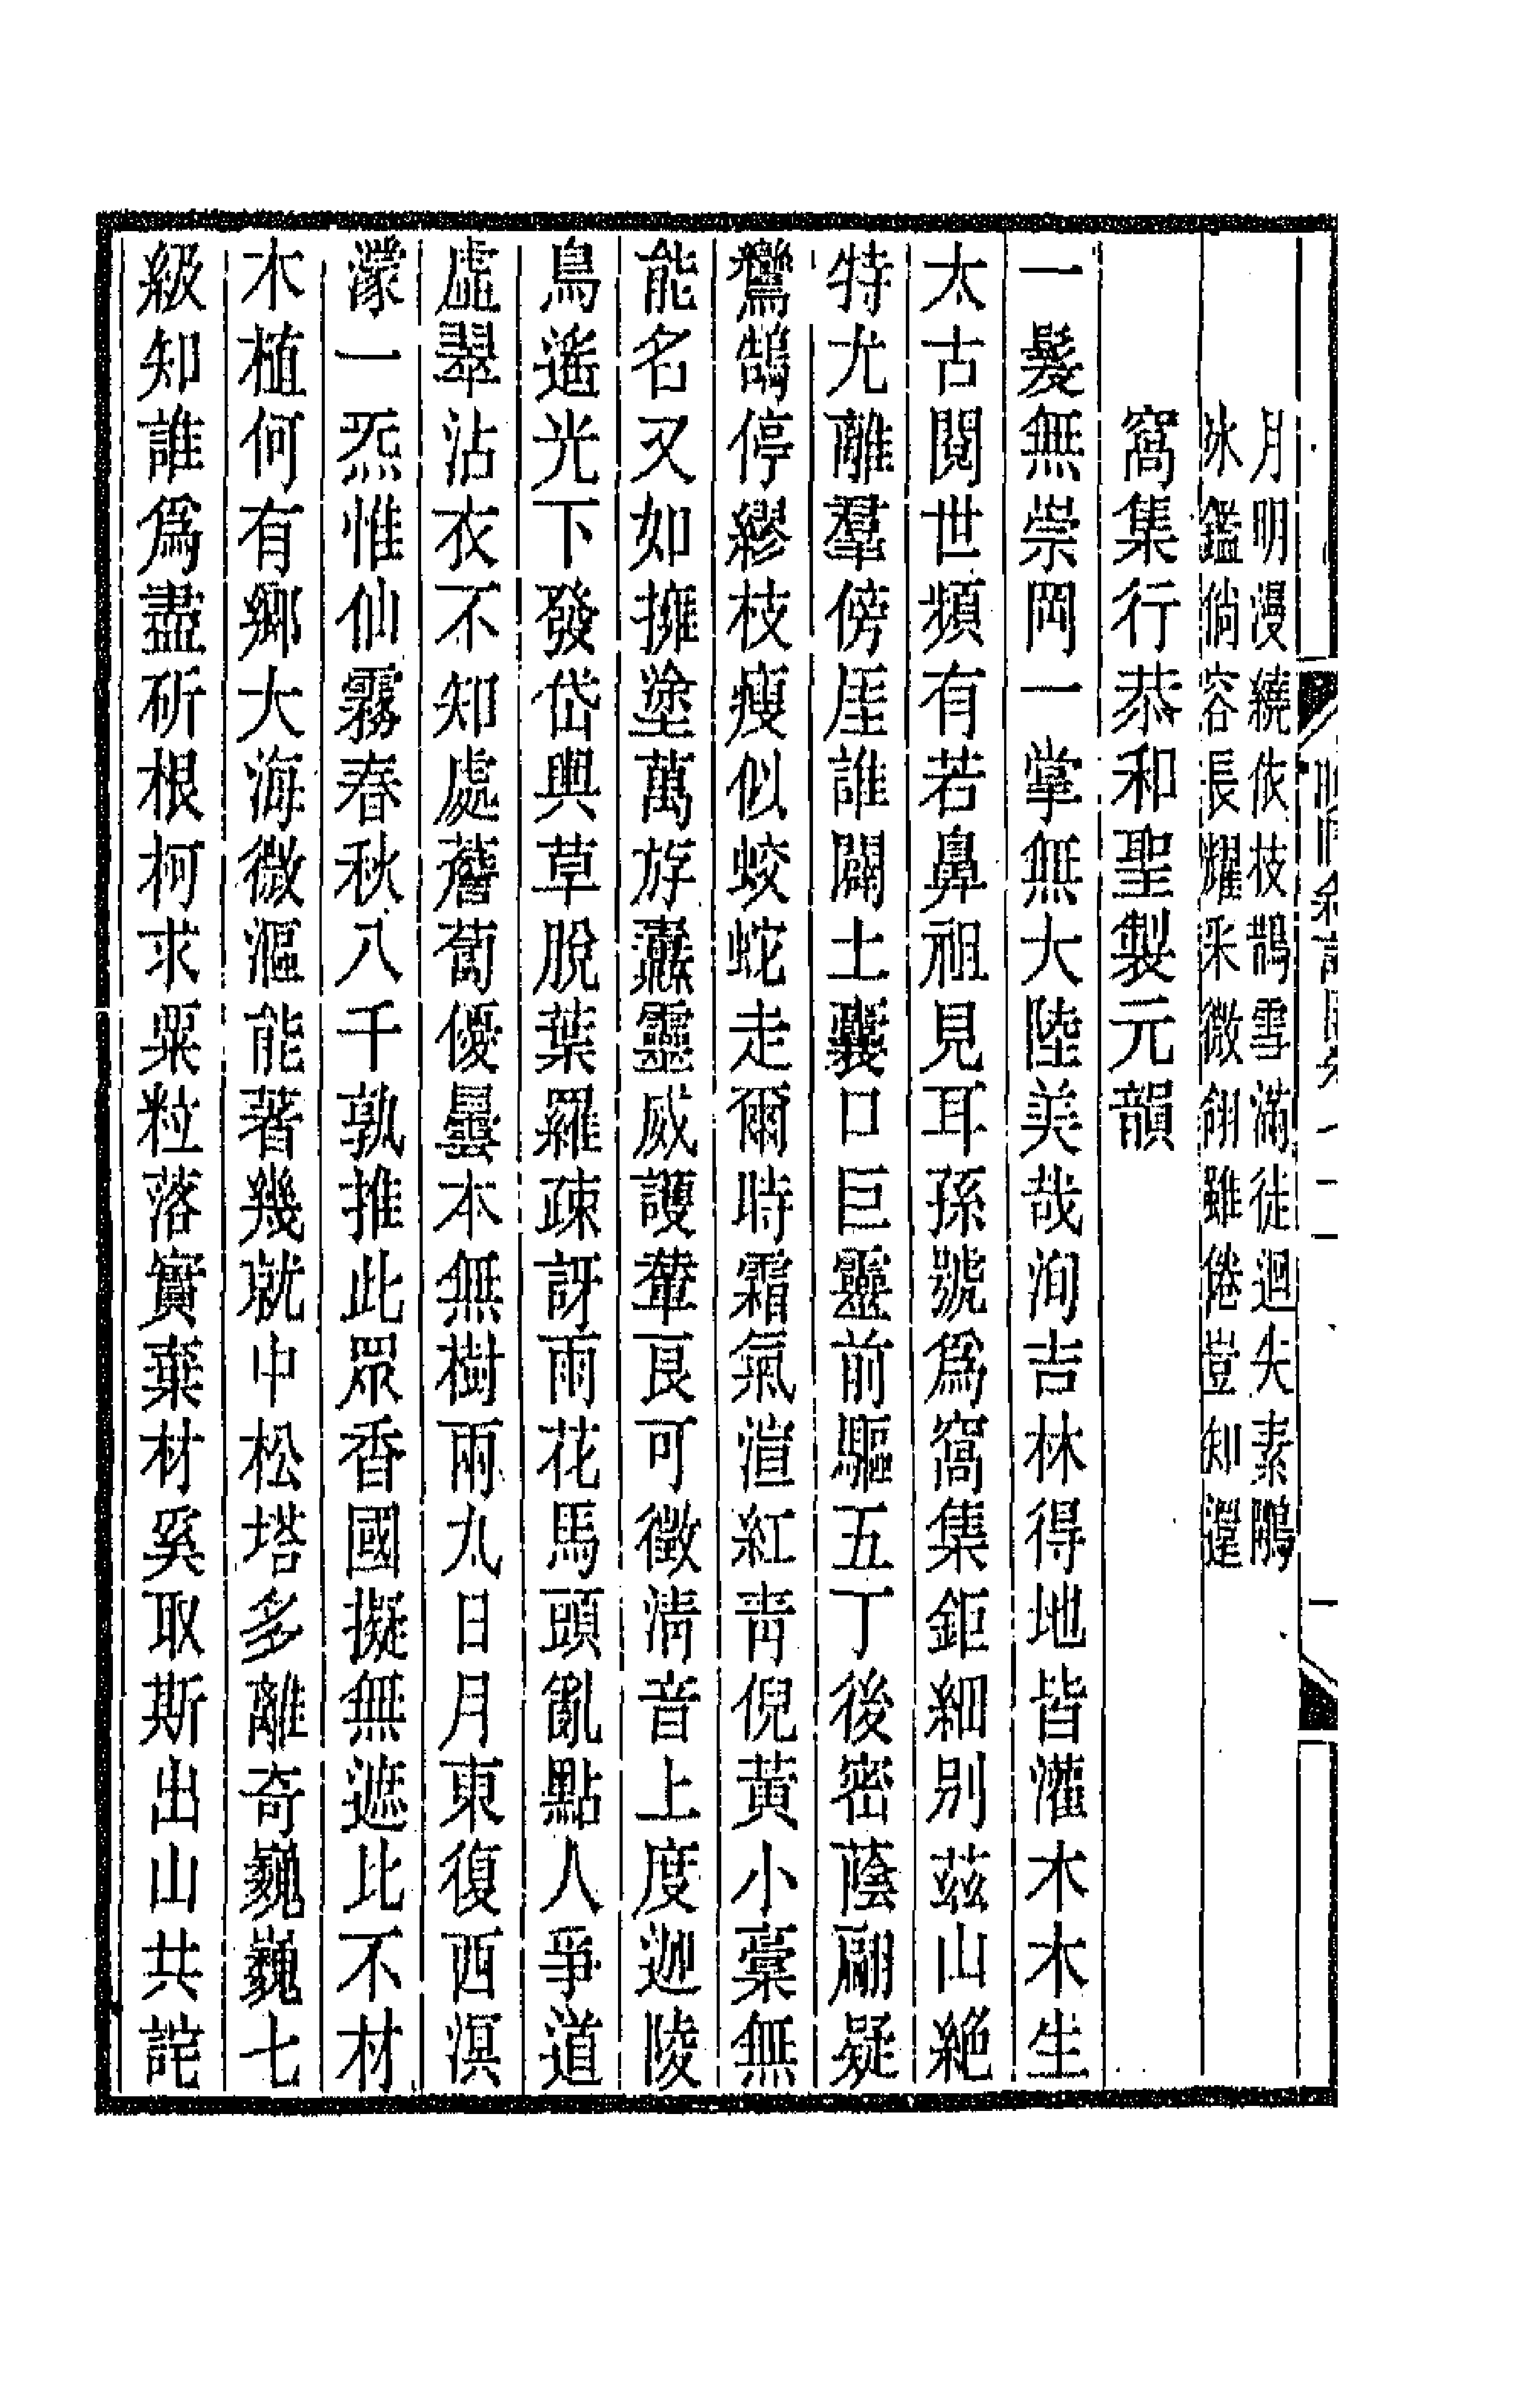 月明漫繞依枝鵲雪滿徒迴失素鷴
冰鑑倘容長耀采微翎雖倦豈知還
窩集行恭和聖製元韻
一髮無崇岡一掌無大陸美哉洵吉林得地皆灌木木生
太古閱世頻有若鼻祖見耳孫號為窩集鉅細別茲山絕
特尤離羣傍厓誰闢土囊口巨靈前驅五丁後密蔭翩疑
鸞鵠停繆枝瘦似蛟蛇走爾時霜氣渲紅青倪黃小稾無
能名又如擁塗萬斿纛靈威護輦良可徵清音上度迦陵
鳥遙光下發岱輿草脫葉羅疎訝雨花馬頭亂點人爭道
虛翠沾衣不知處薝蔔優曇本無樹兩丸日月東復西溟
濛一炁惟仙霧春秋八千孰推此眾香國擬無遮比不材
木植何有鄉大海微漚能著幾就中松塔多離奇巍巍七
級知誰為盡斫根柯求粟粒落實棄材奚取斯出山共詫